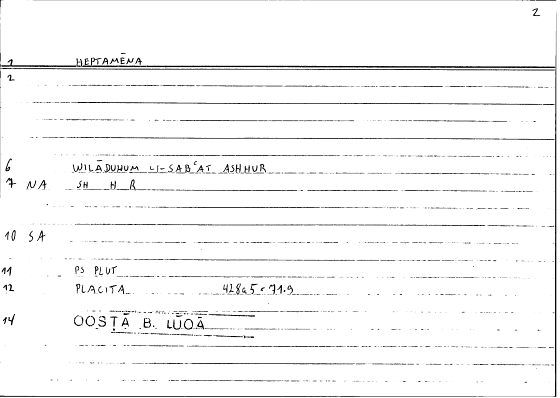 2
1 HEPTAMĒNA
2
6 WILĀDUHUM LI-SABʿAT ASHHUR
7 NA SH H R
10 SA
11 PS PLUT
12 PLACITA 428a5 - 71.9
14 OOSṬĀ B. LŪOĀ